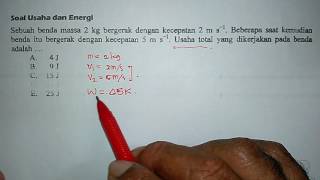 Soal Usaha dan Energi
Sebuah benda massa 2 kg bergerak dengan kecepatan 2 m s⁻¹. Beberapa saat kemudian
benda itu bergerak dengan kecepatan 5 m s⁻¹. Usaha total yang dikerjakan pada benda
adalah ....
A. 4 J m = 2 kg
B. 9 J V₁ = 2 m/s
C. 15 J V₂ = 5 m/s
E. 25 J W = ΔEK.